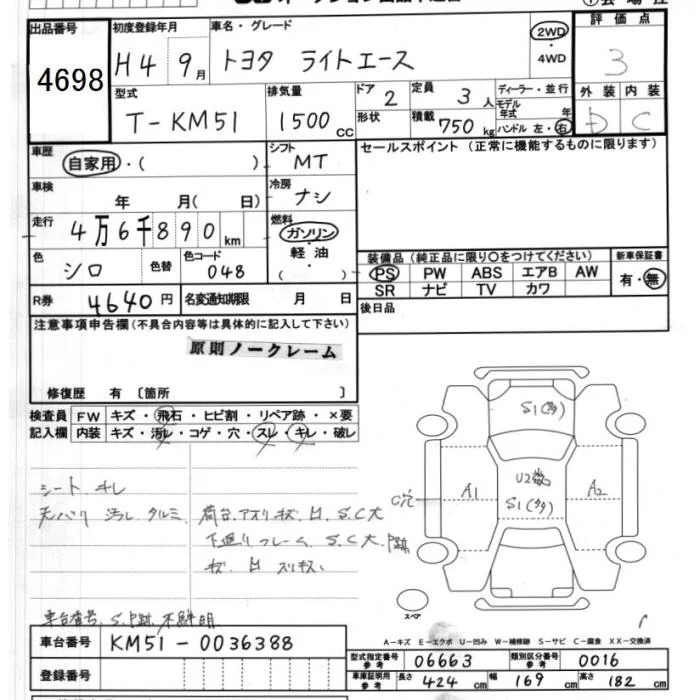 出品番号
4698
初度登録年月
H4 9月
車名・グレード
トヨタ ライトエース
2WD
・
4WD
評価点
3
型式
T-KM51
排気量
1500cc
ドア 2
形状
定員 3人
積載 750kg
ディーラー・並行
モデル年式 年
ハンドル 左・右
外装 内装
D C
車歴
自家用・( )
シフト
MT
セールスポイント（正常に機能するものに限ります）
車検
年 月( 日)
冷房
ナシ
走行
4万6千890km
燃料
ガソリン
・
軽油
( )
色
シロ
色替
色コード
048
装備品（純正品に限り〇をつけてください）
新車保証書
PS PW ABS エアB AW
SR ナビ TV カワ
有・無
R券 4640円
名変通知期限 月 日
後日品
注意事項申告欄（不具合内容等は具体的に記入して下さい）
原則ノークレーム
修復歴 有〔箇所 〕
検査員記入欄
FW キズ・飛石・ヒビ割・リペア跡・×要
内装 キズ・汚レ・コゲ・穴・スレ・キレ・破レ
シート キレ
天バリ 汚レ タルミ
荷台、アオリ キズ、H、S、C大
下廻り フレーム、S、C大、P跡
キズ、H
S1(多)
U2数
S1(多)
C穴
A1
A2
スペア
車台番号、S、P跡、不鮮明
車台番号 KM51-0036388
登録番号
A-キズ E-エクボ U-凹み W-補修跡 S-サビ C-腐食 XX-交換済
型式指定番号 参考 06663
類別区分番号 参考 0016
車庫証明用 参考
長さ 424cm
幅 169cm
高さ 182cm